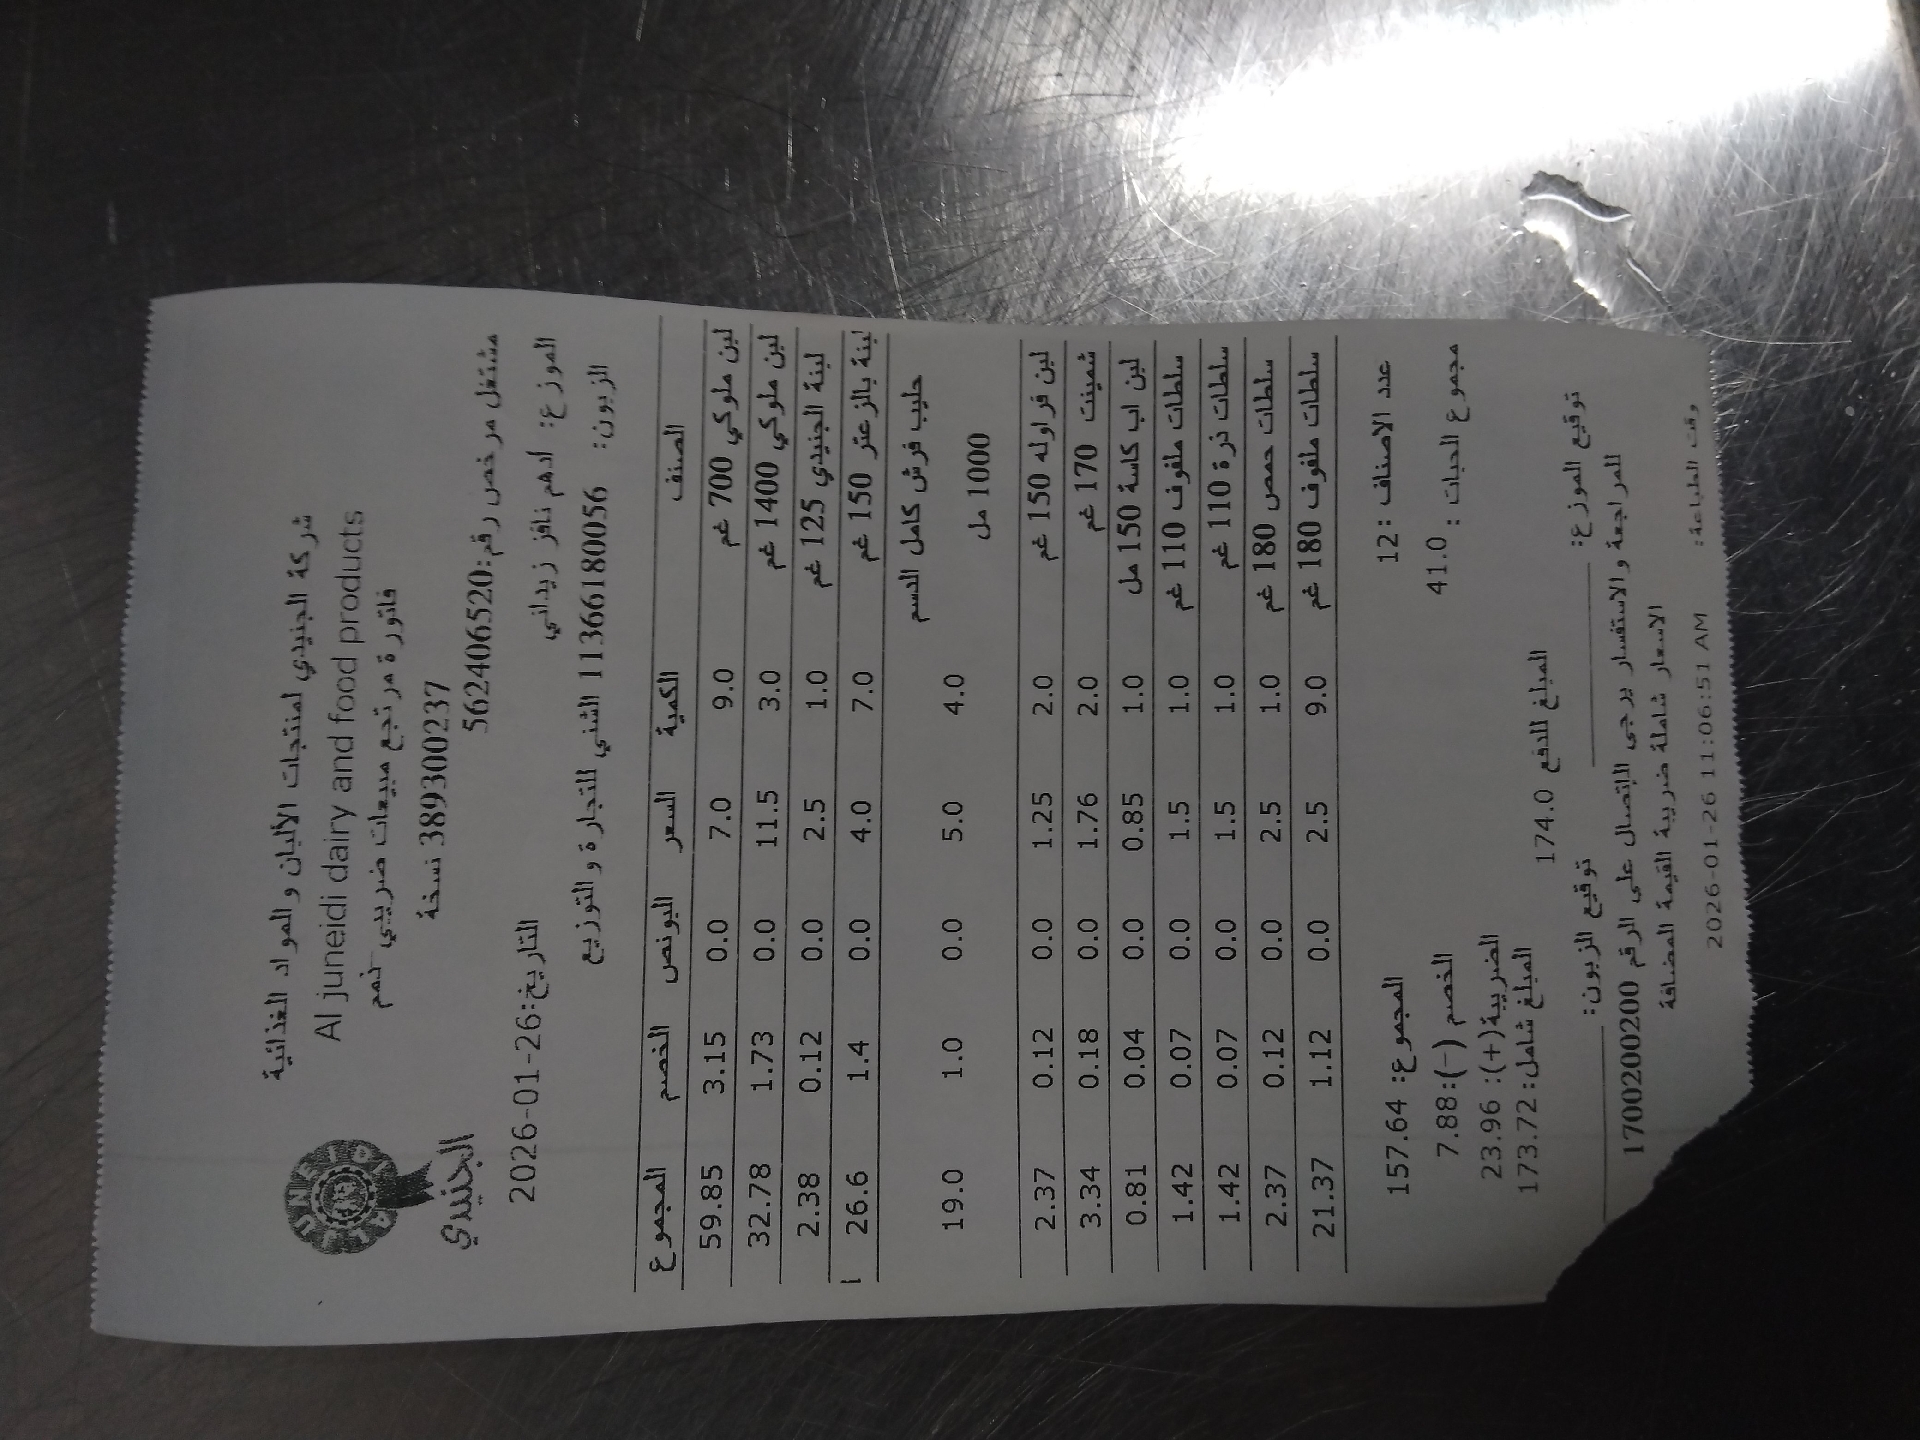 JUNEIDI
الجنيدي
شركة الجنيدي لمنتجات الألبان و المواد الغذائية
Al juneidi dairy and food products
فاتورة مرتجع مبيعات ضريبي
389300237 نسخة
مشتغل مرخص رقم:562406520
الموزع: أدهم نافز زيداني التاريخ:26-01-2026
الزبون: 11366180056 الشني للتجارة و التوزيع
الصنف الكمية السعر البونص الخصم المجموع
لبن ملوكي 700 غم 9.0 7.0 0.0 3.15 59.85
لبن ملوكي 1400 غم 3.0 11.5 0.0 1.73 32.78
لبنة الجنيدي 125 غم 1.0 2.5 0.0 0.12 2.38
لبنة بالزعتر 150 غم 7.0 4.0 0.0 1.4 26.6
حليب فرش كامل الدسم 1000 مل 4.0 5.0 0.0 1.0 19.0
لبن فراوله 150 غم 2.0 1.25 0.0 0.12 2.37
شمينت 170 غم 2.0 1.76 0.0 0.18 3.34
لبن اب كاسة 150 مل 1.0 0.85 0.0 0.04 0.81
سلطات ملفوف 110 غم 1.0 1.5 0.0 0.07 1.42
سلطات ذرة 110 غم 1.0 1.5 0.0 0.07 1.42
سلطات حمص 180 غم 1.0 2.5 0.0 0.12 2.37
سلطات ملفوف 180 غم 9.0 2.5 0.0 1.12 21.37
عدد الاصناف :12 المجموع: 157.64
مجموع الحبات : 41.0 الخصم (-):7.88
الضريبة(+): 23.96
المبلغ للدفع 174.0 المبلغ شامل: 173.72
توقيع الموزع: توقيع الزبون:
للمراجعة و الاستفسار يرجى الاتصال على الرقم 1700200200
الاسعار شاملة ضريبة القيمة المضافة
وقت الطباعة: 2026-01-26 11:06:51 AM